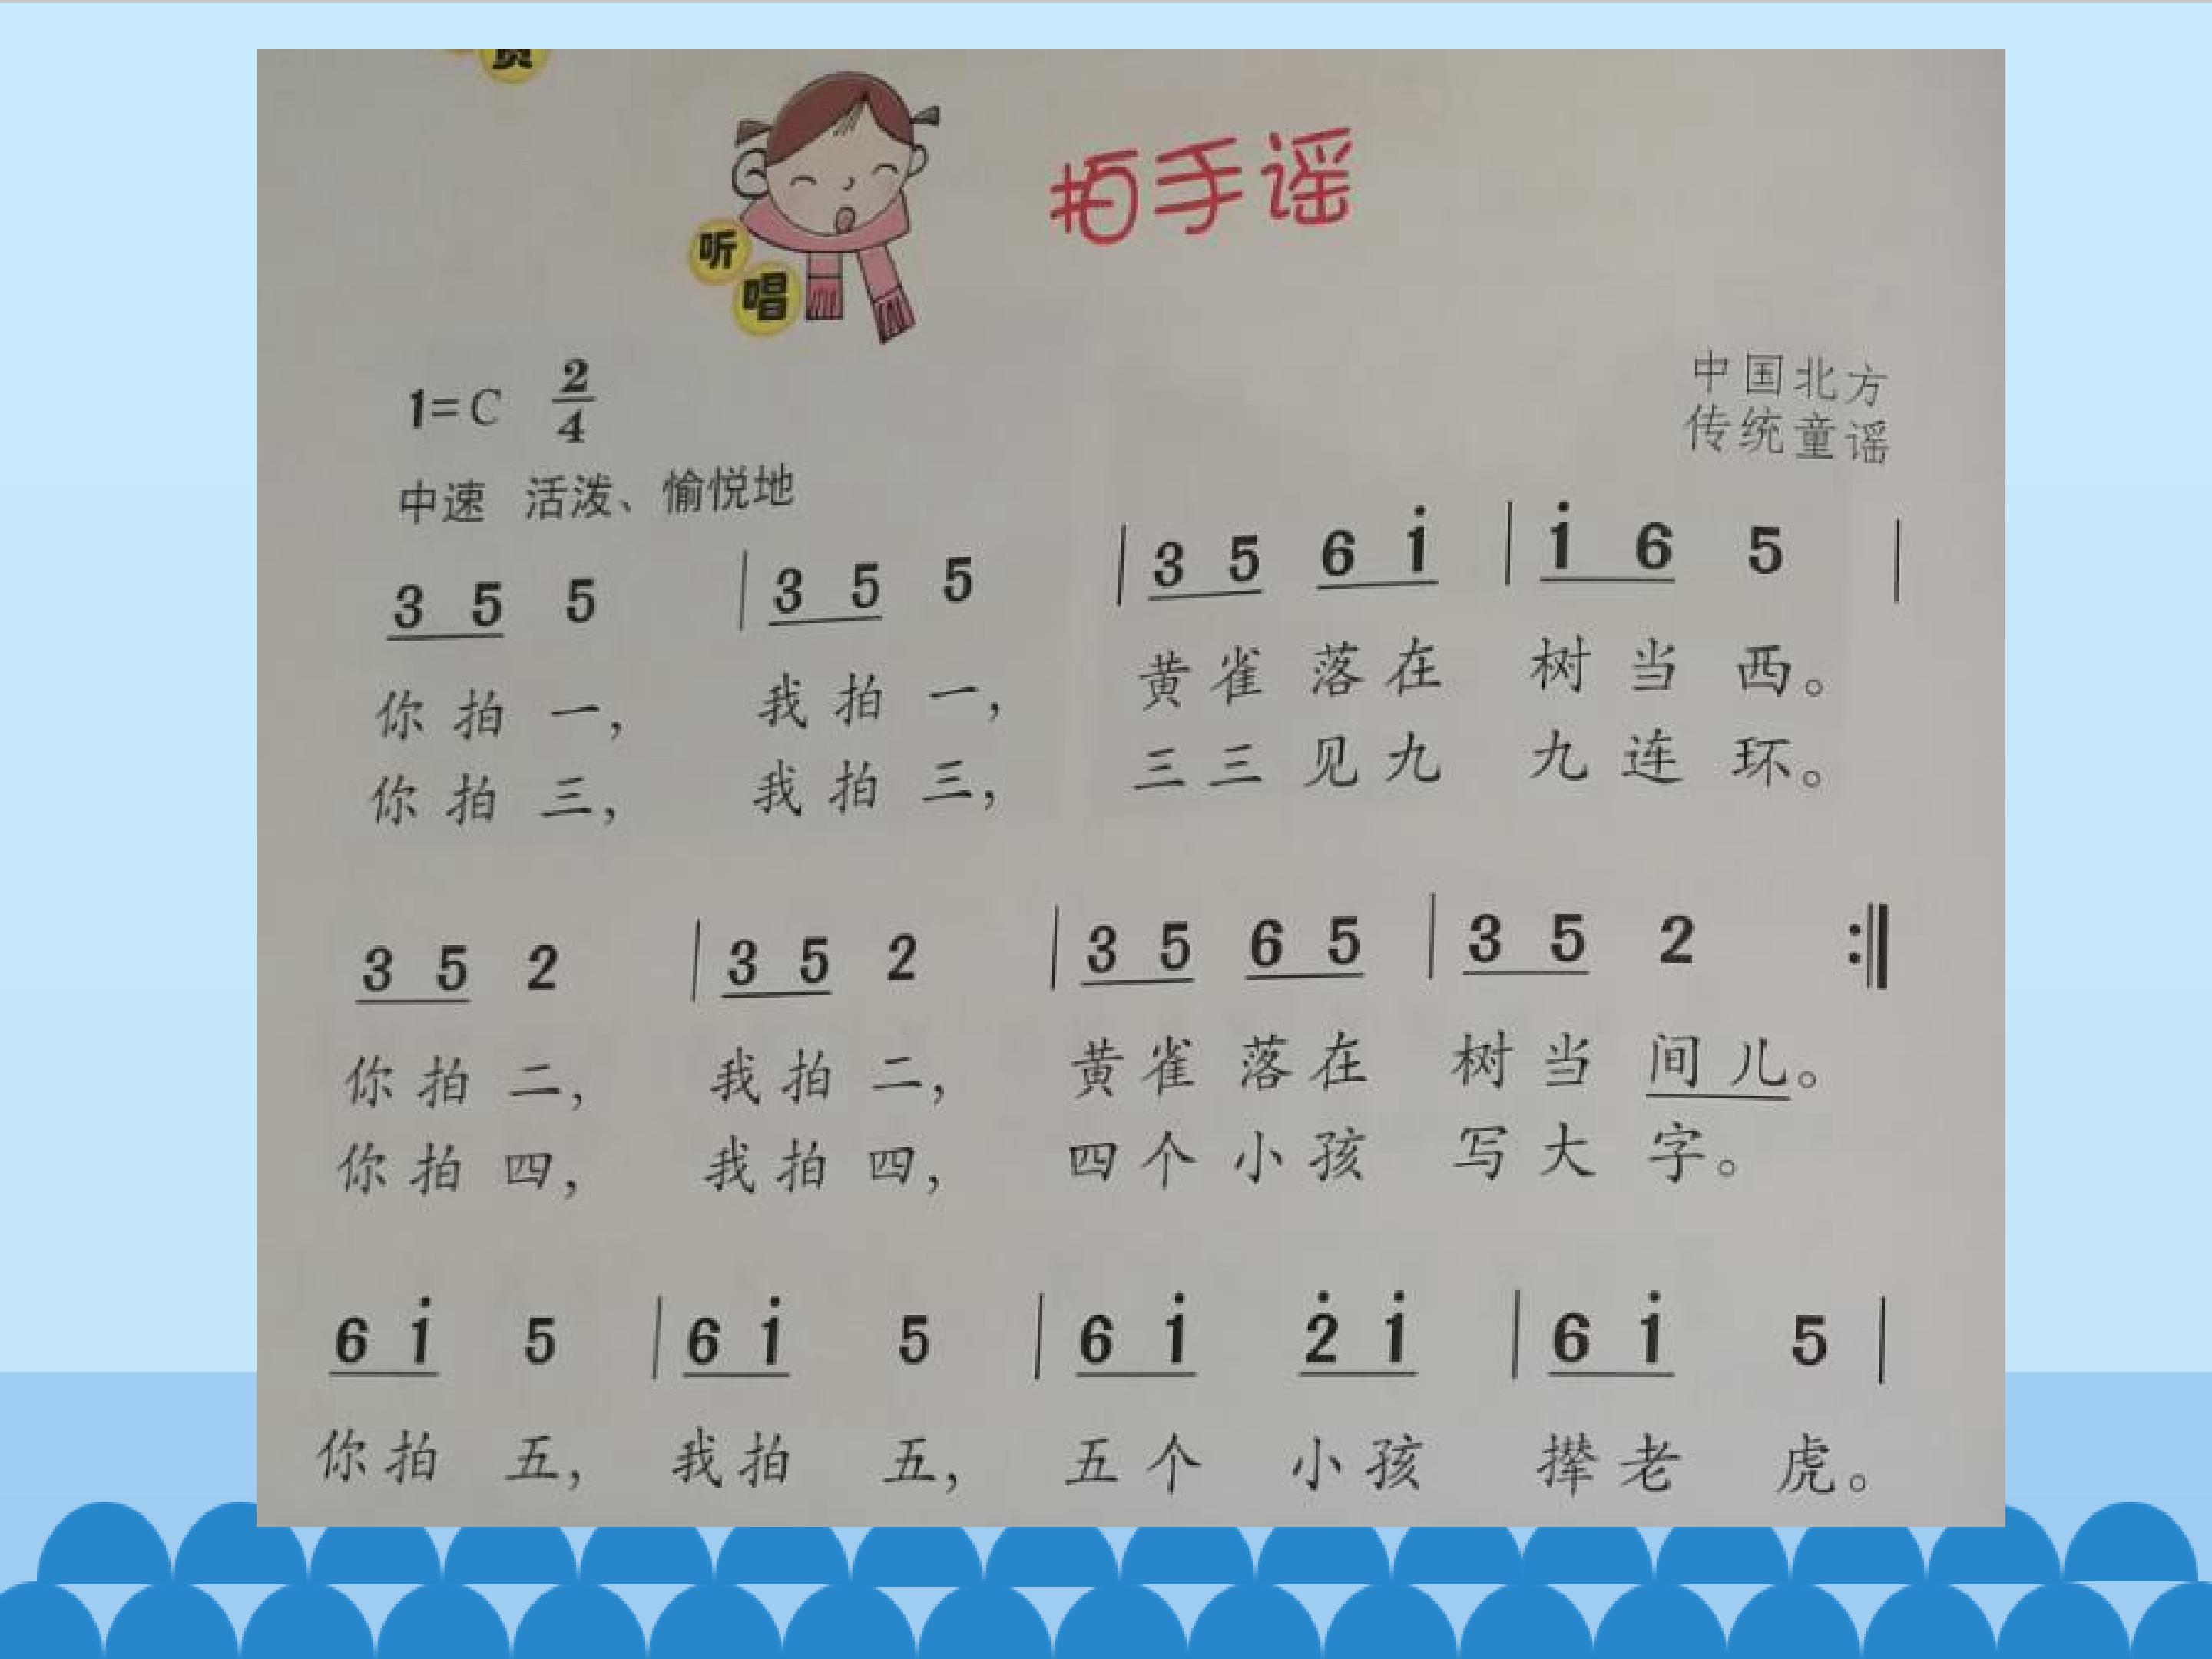 赏
拍手谣
听
唱
1=C 2/4
中国北方
传统童谣
中速 活泼、愉悦地
3 5 5 | 3 5 5 | 3 5 6 i | i 6 5 |
你拍一, 我拍一, 黄雀落在 树当西。
你拍三, 我拍三, 三三见九 九连环。
3 5 2 | 3 5 2 | 3 5 6 5 | 3 5 2 :‖
你拍二, 我拍二, 黄雀落在 树当间儿。
你拍四, 我拍四, 四个小孩 写大字。
6 i 5 | 6 i 5 | 6 i 2̇ i | 6 i 5 |
你拍五, 我拍五, 五个小孩 撵老虎。